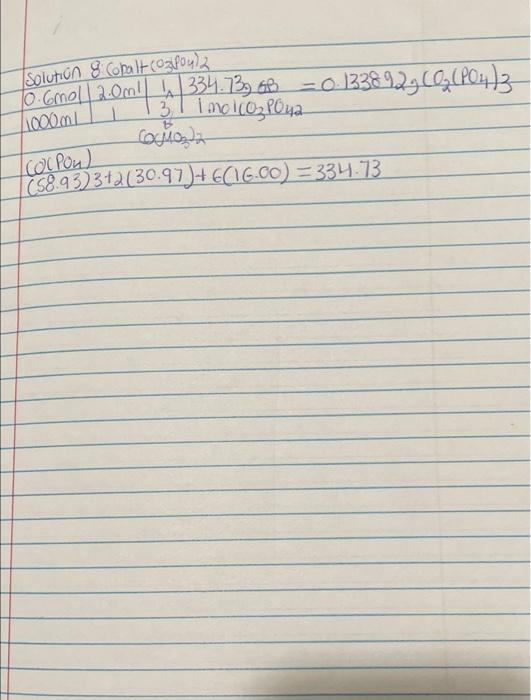 Solution 8 Cobalt CO3(PO4)2
0.6mol | 2.0ml | 1 | 334.73g = 0.133892g CO2(PO4)3
1000ml | 1 | 3 | 1 mol CO3PO42
CO(NO3)2
CO(PO4)
(58.93)3+2(30.97)+6(16.00) = 334.73